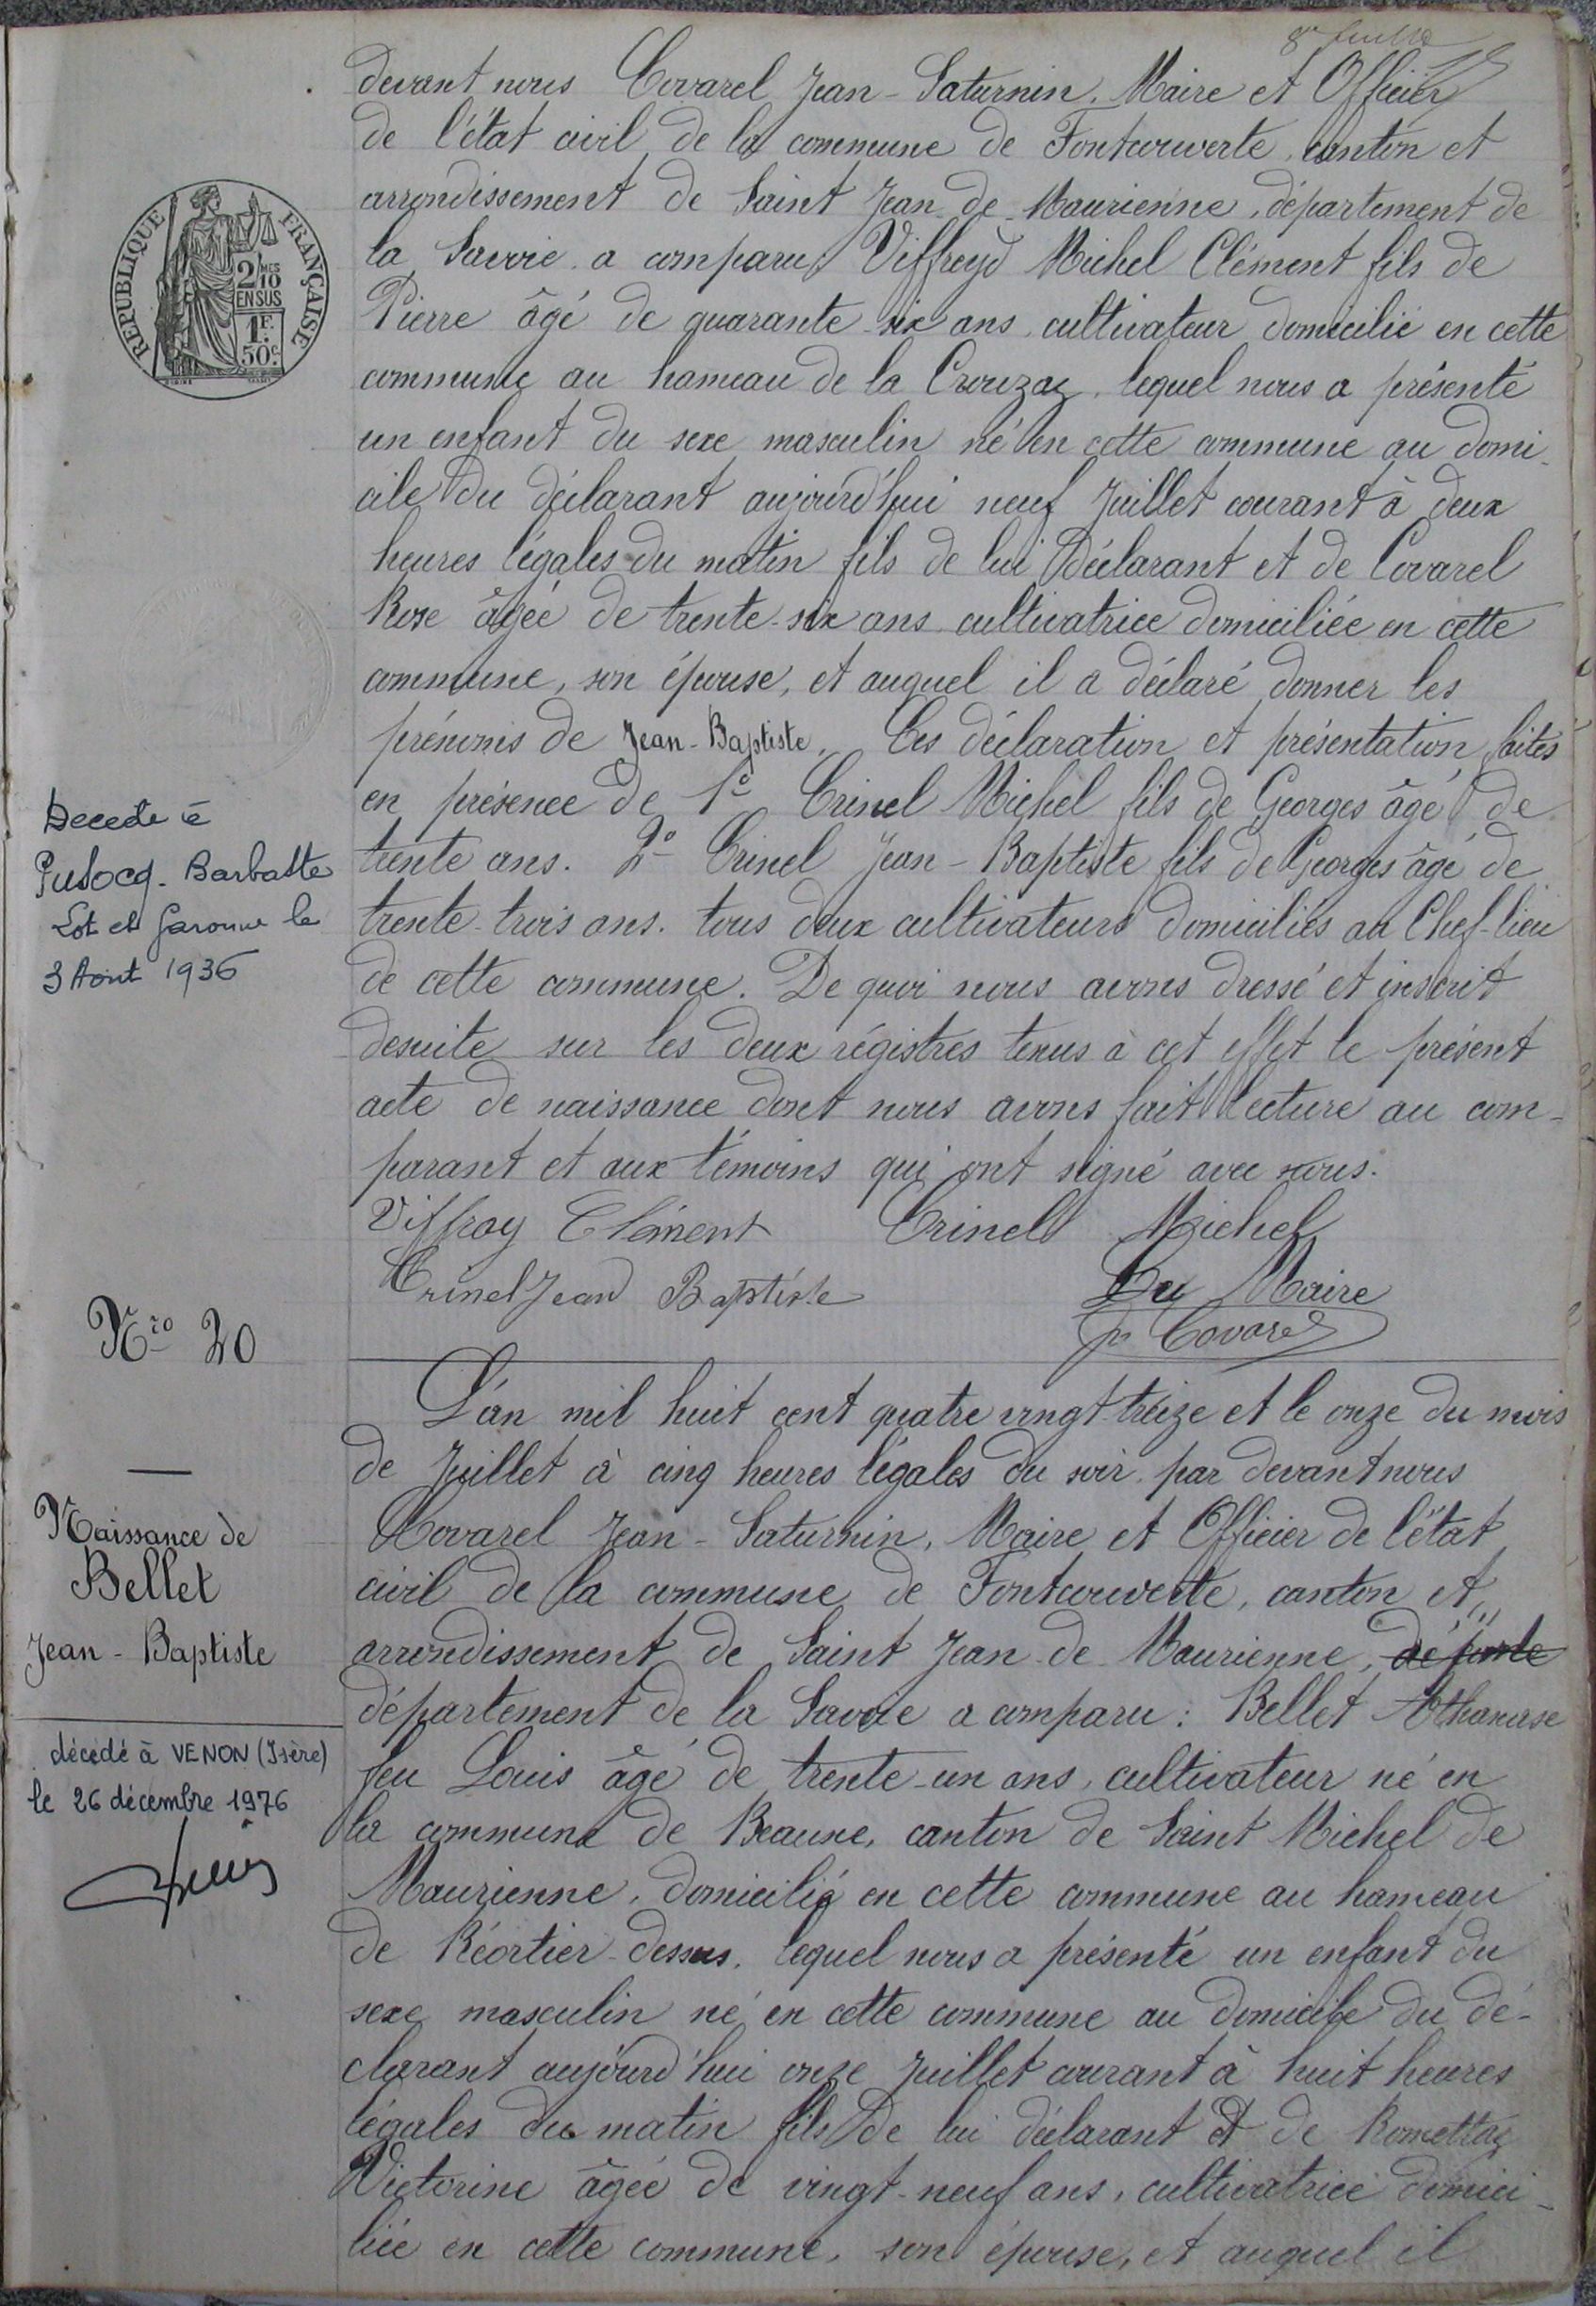 devant nous Covarel Jean-Saturnin. Maire et Officier
de l'état civil de la commune de Fontcouverte, canton et
arrondissement de Saint Jean de Maurienne, département de
la Savoie a comparu Viffroy Michel Clément fils de
Pierre âgé de quarante-six ans cultivateur domicilié en cette
commune au hameau de la Crouzaz, lequel nous a présenté
un enfant du sexe masculin né en cette commune au domi-
cile du déclarant aujourd'hui neuf Juillet courant à deux
heures légales du matin fils de lui Déclarant et de Covarel
Rose âgée de trente-six ans cultivatrice domiciliée en cette
commune, son épouse, et auquel il a déclaré donner les
prénoms de Jean-Baptiste. Ces déclaration et présentation faites
en présence de 1° Crinel Michel fils de Georges âgé de
trente ans. 2° Crinel Jean-Baptiste fils de Georges âgé de
trente-trois ans. tous deux cultivateurs domiciliés au Chef-lieu
de cette commune. De quoi nous avons dressé et inscrit
desuite sur les deux régistres tenus à cet effet le présent
acte de naissance dont nous avons fait lecture au com-
parant et aux témoins qui ont signé avec nous.
Viffroy Clément Crinel Michel
Crinel Jean Baptiste Le Maire
Covarel
REPUBLIQUE FRANÇAISE
2/10 MES
EN SUS
1F.
50c.
Decede à
Pusocq-Barbaste
Lot et Garonne le
3 Aout 1936
Nro 20
Naissance de
Bellet
Jean-Baptiste
décédé à VENON (Isère)
le 26 décembre 1976
L'an mil huit cent quatre vingt-treize et le onze du mois
de Juillet à cinq heures légales du soir par devant nous
Covarel Jean-Saturnin, Maire et Officier de l'état
civil de la commune de Fontcouverte, canton et
arrondissement de Saint Jean-de-Maurienne,
département de la Savoie a comparu: Bellet Athanase
feu Louis âgé de trente-un ans, cultivateur né en
la commune de Beaune, canton de Saint Michel de
Maurienne, domicilié en cette commune au hameau
de Réortier-dessus, lequel nous a présenté un enfant du
sexe masculin né en cette commune au domicile du dé-
clarant aujourd'hui onze Juillet courant à huit heures
légales du matin fils de lui déclarant et de Romettaz
Victorine âgée de vingt-neuf ans, cultivatrice domici-
liée en cette commune, son épouse, et auquel il